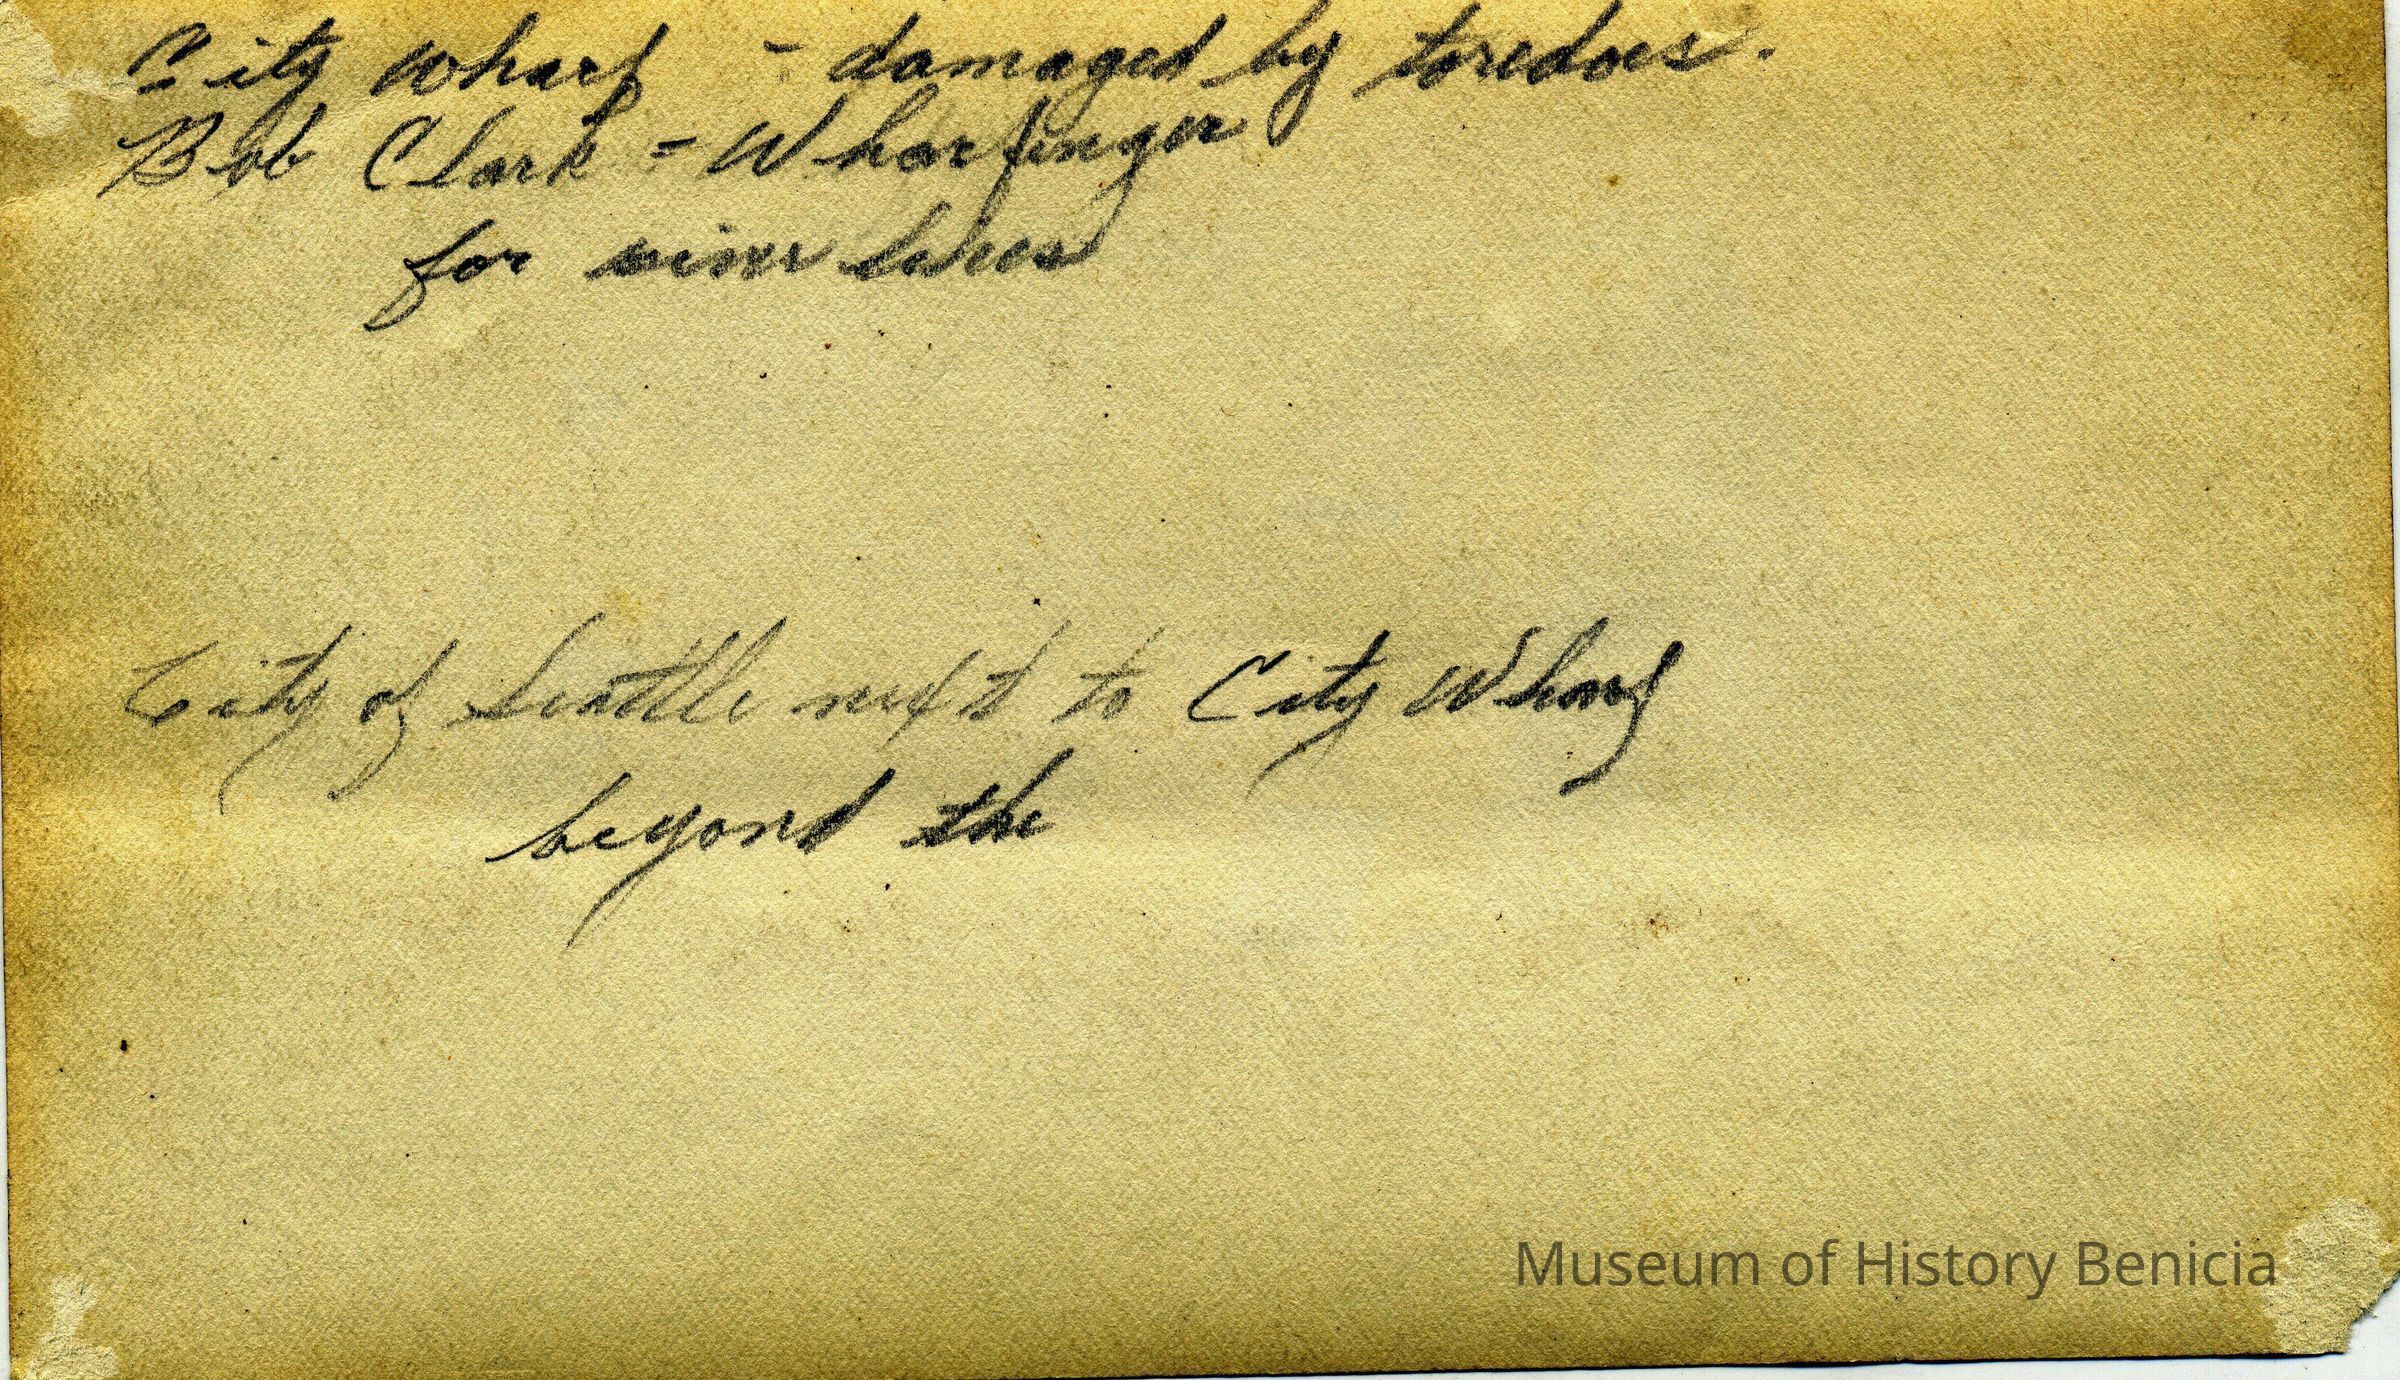 City Wharf - damaged by toredoes.
Bob Clark - Wharfinger
for river
City of Seattle next to City Wharf
beyond the
Museum of History Benicia